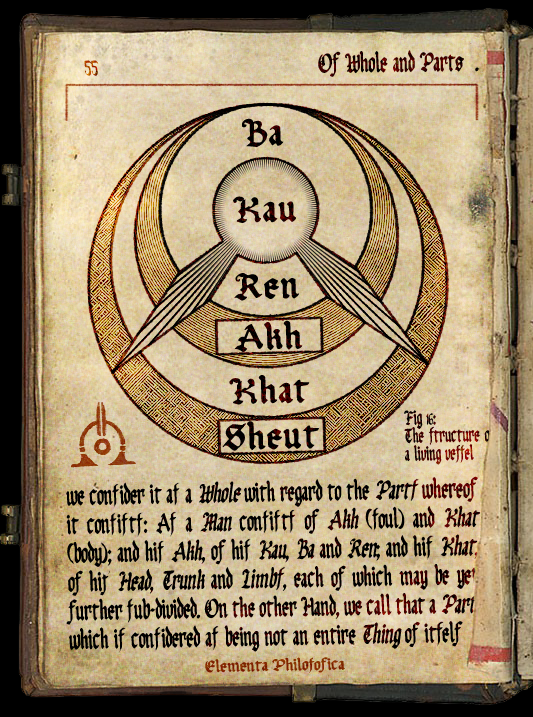 55
Of Whole and Parts .
Ba
Kau
Ren
Akh
Khat
Sheut
Fig 16:
The ſtructure o
a living veſſel
we conſider it aſ a Whole with regard to the Partſ whereof
it conſiſtſ: Aſ a Man conſiſtſ of Akh (ſoul) and Khat
(body); and hiſ Akh, of hiſ Kau, Ba and Ren; and hiſ Khat,
of hiſ Head, Trunk and Limbſ, each of which may be yet
further ſub-divided. On the other Hand, we call that a Part
which iſ conſidered aſ being not an entire Thing of itſelf
Elementa Philoſofica